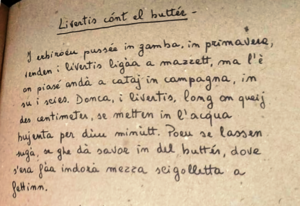 Livertis cónt el buttér -
I erbiroeu pussée in gamba, in primavera,
venden i livertis ligàa a mazzett, ma l'è
on piasè andà a cataj in campagna, in
su i scies. Donca, i livertis, long on quaij
des centimeter, se metten in l'acqua
bujenta per dieu minutt. Poeu se lassen
sugà, se ghe dà savoe in del buttér, dove
s'era fàa indorà mezza scigolletta a
fettinn.